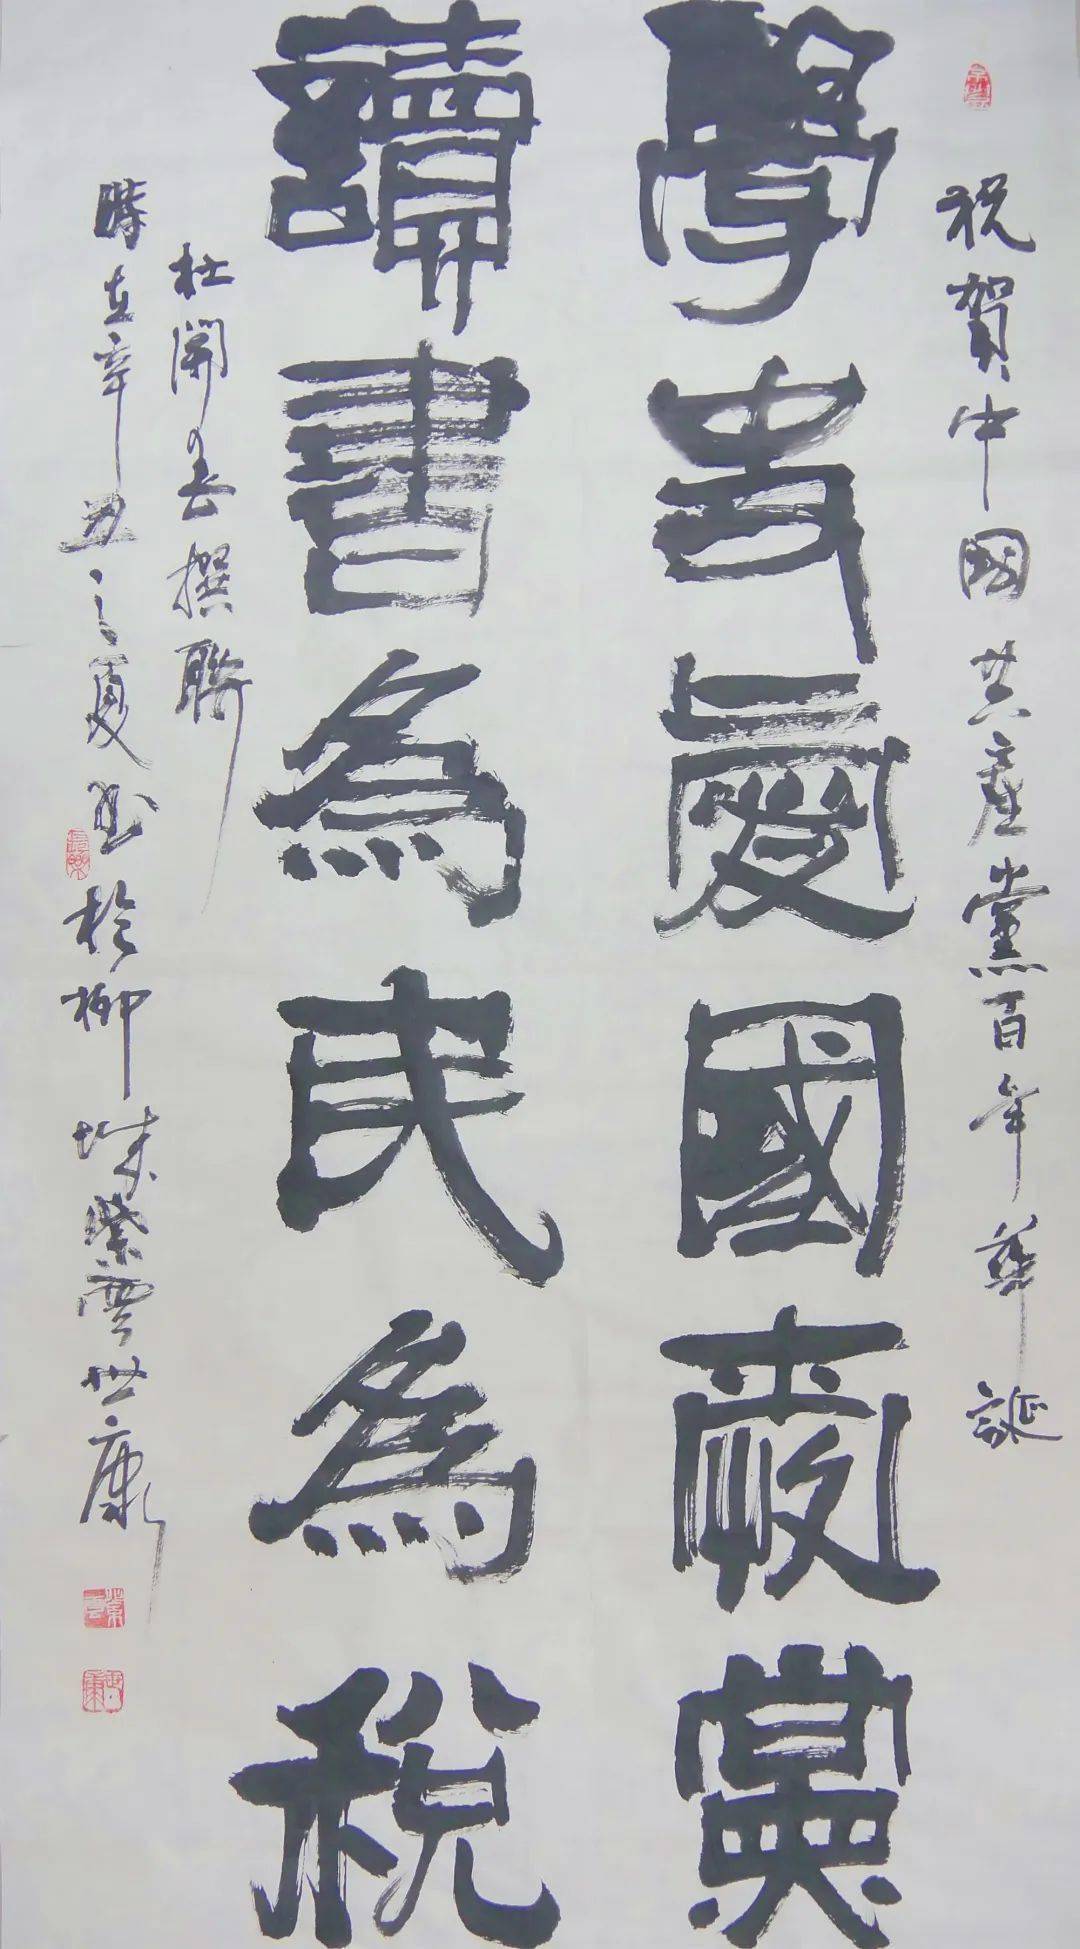 祝賀中國共產黨百年華誕
學史愛國黨
讀書為民為稅
杜開撰聯
時在辛丑之夏书於柳城紫雲世康